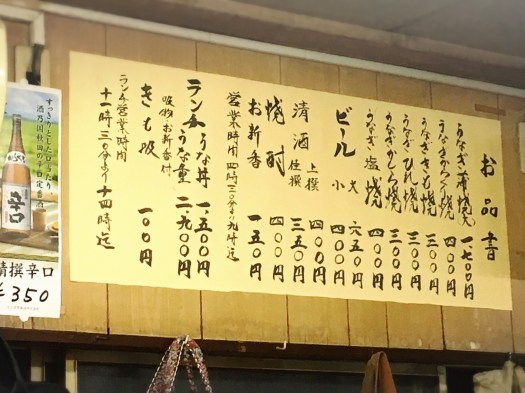 お品書
うなぎ蒲焼 大 一、七〇〇円
うなぎくりから焼 四〇〇円
うなぎきも焼 三〇〇円
うなぎひれ焼 三〇〇円
うなぎかしら焼 三〇〇円
うなぎ塩焼 四〇〇円
ビール 大 六五〇円
小 四〇〇円
清酒 上撰 四〇〇円
佳撰 三五〇円
焼酎 四〇〇円
お新香 一五〇円
営業時間 四時三〇分より九時迄
ランチ うな丼 一、五〇〇円
うな重 二、九〇〇円
吸物 お新香付
きも吸 一〇〇円
ランチ営業時間
十一時三〇分より十四時迄
すっきりとした口当たり
酒乃国秋田の辛口定番酒
辛口
精撰辛口
¥350